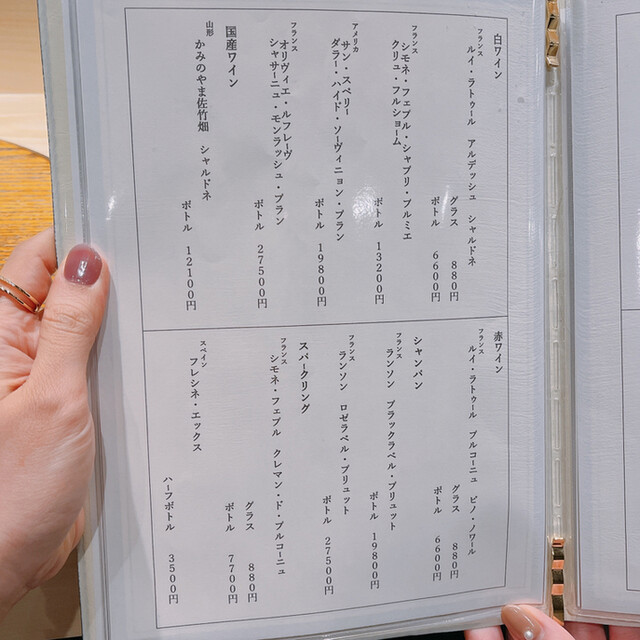 白ワイン
フランス
ルイ・ラトゥール アルデッシュ シャルドネ
グラス 880円
ボトル 6600円
フランス
シモネ・フェブル・シャブリ・プルミエ
クリュ・フルショーム
ボトル 13200円
アメリカ
サン・スペリー
ダラー・ハイド・ソーヴィニョン・ブラン
ボトル 19800円
フランス
オリヴィエ・ルフレーヴ
シャサーニュ・モンラッシュ・ブラン
ボトル 27500円
国産ワイン
山形
かみのやま佐竹畑 シャルドネ
ボトル 12100円
赤ワイン
フランス
ルイ・ラトゥール ブルゴーニュ ピノ・ノワール
グラス 880円
ボトル 6600円
シャンパン
フランス
ランソン ブラックラベル・ブリュット
ボトル 19800円
フランス
ランソン ロゼラベル・ブリュット
ボトル 27500円
スパークリング
フランス
シモネ・フェブル クレマン・ド・ブルゴーニュ
グラス 880円
ボトル 7700円
スペイン
フレシネ・エックス
ハーフボトル 3500円